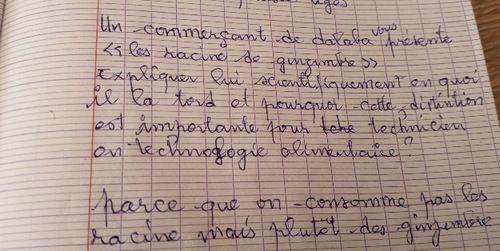 Un commerçant de dalaba vous présente
<< les racine de gingembre >>
Expliquer lui scientifiquement en quoi
il la tord et pourquoi cette distintion
est importante pour tche technicien
en technologie alimentaire?
parce que on consomme pas les
racine mais plutôt des gingembre